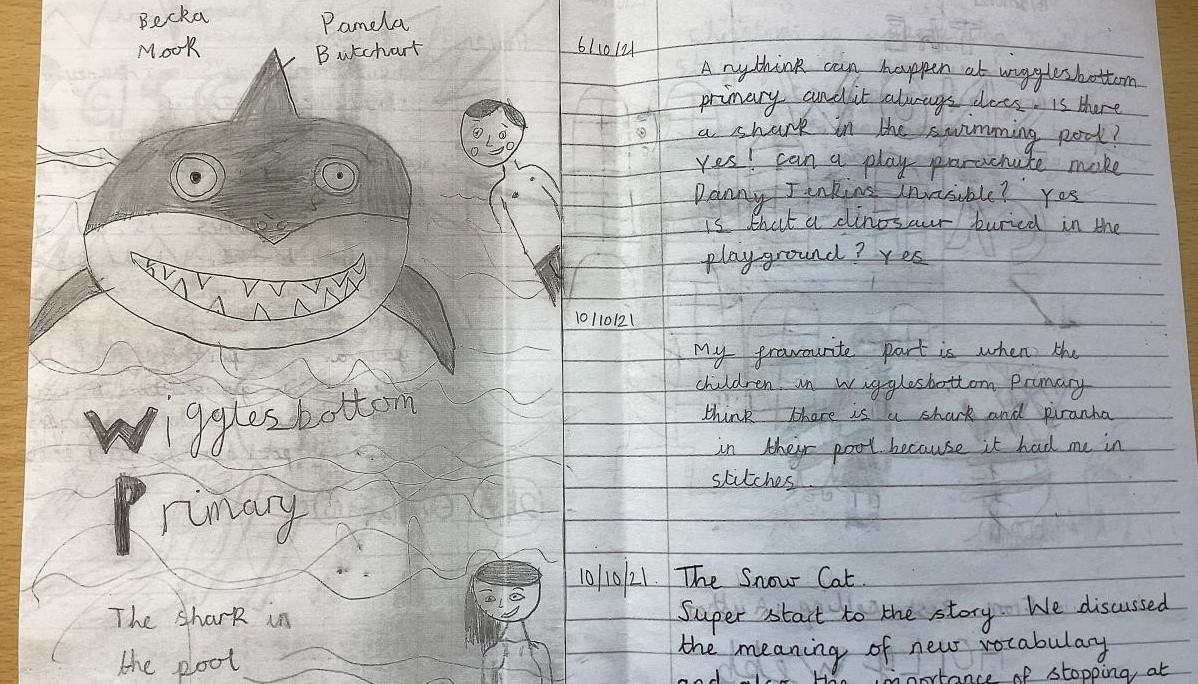 Becka
Mook
Pamela
Butchart
Wigglesbottom
Primary
The shark in
the pool
6/10/21
Anythink can happen at wigglesbottom
primary and it always does. is there
a shark in the swimming pool?
Yes! can a play parachute make
Danny Jenkins Invasible? Yes
is that a dinosaur buried in the
playground? Yes
10/10/21
My fravourite part is when the
children in Wigglesbottom Primary
think there is a shark and piranha
in their pool because it had me in
stitches.
10/10/21. The Snow Cat.
Super start to the story We discussed
the meaning of new vocabulary
and also the importance of stopping at